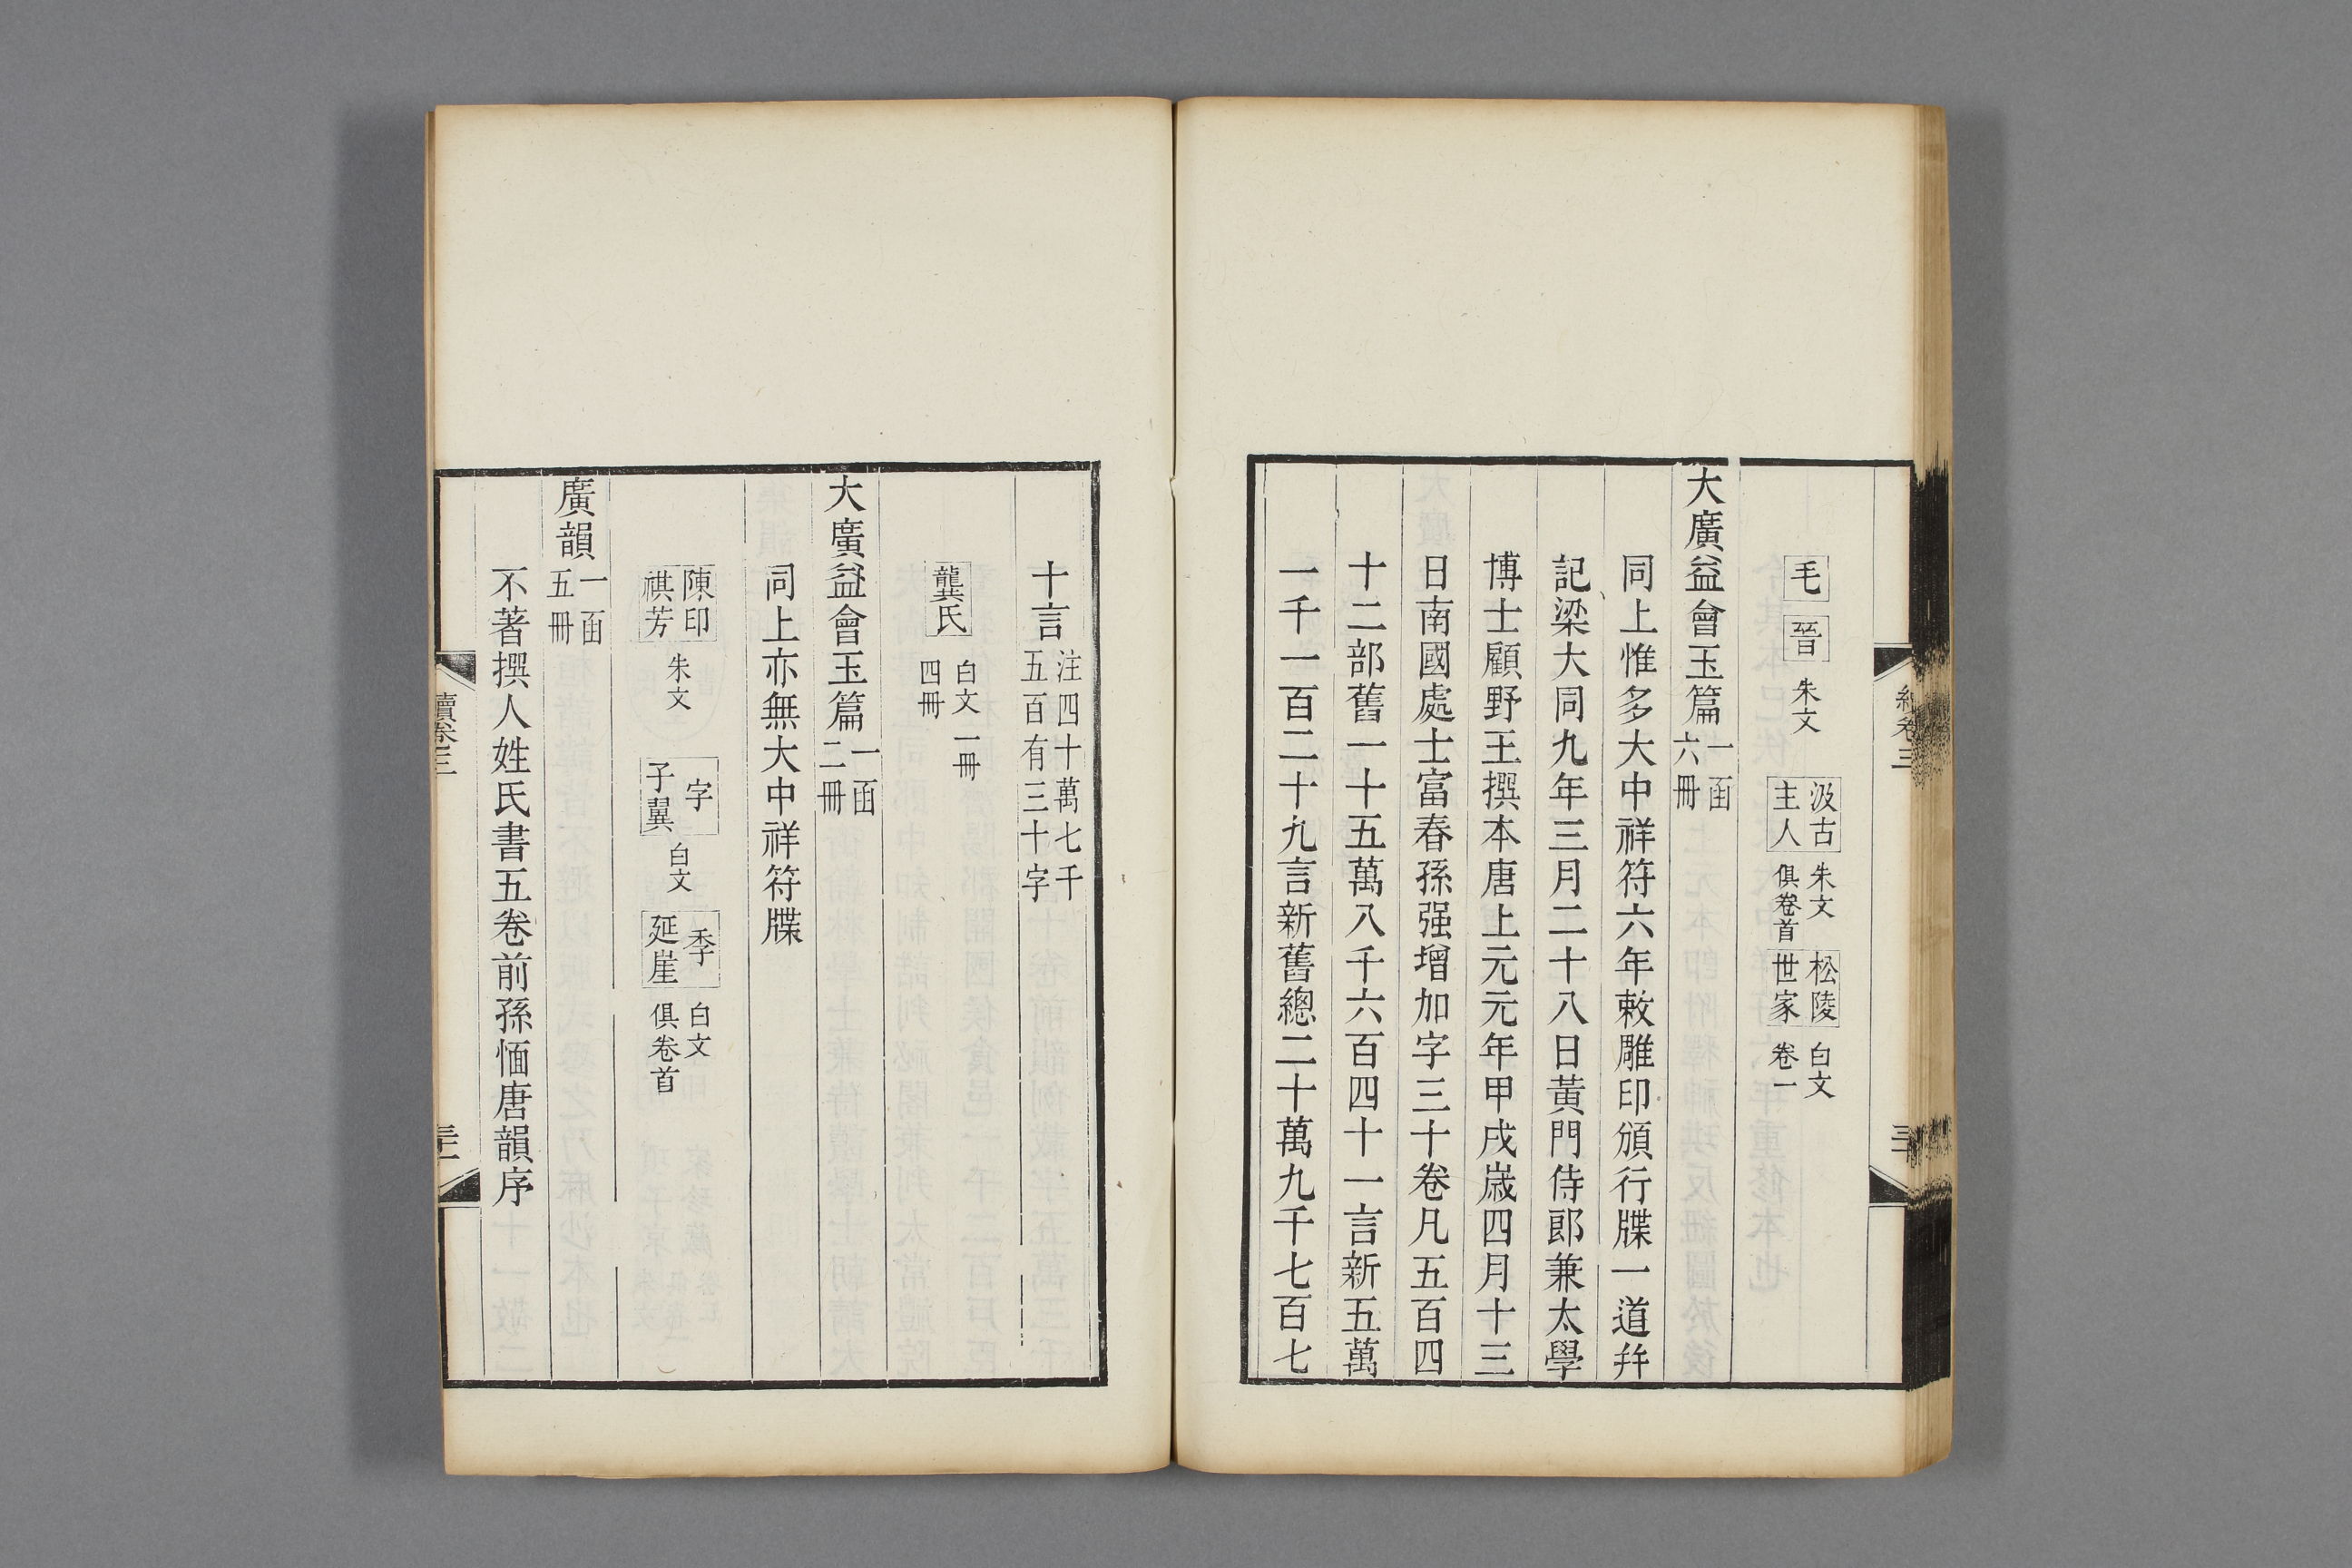 毛 晉 朱文 汲古主人 朱文俱卷首 松陵世家 白文卷一
大廣益會玉篇一函六冊
同上惟多大中祥符六年敕雕印頒行牒一道幷
記梁大同九年三月二十八日黃門侍郎兼太學
博士顧野王撰本唐上元元年甲戌歲四月十三
日南國處士富春孫强增加字三十卷凡五百四
十二部舊一十五萬八千六百四十一言新五萬
一千一百二十九言新舊總二十萬九千七百七
十言注四十萬七千五百有三十字
龔氏 白文一冊四冊
大廣益會玉篇一函二冊
同上亦無大中祥符牒
陳印祺芳 朱文 字子翼 白文 季延崖 白文俱卷首
廣韻一函五冊
不著撰人姓氏書五卷前孫愐唐韻序
續卷三